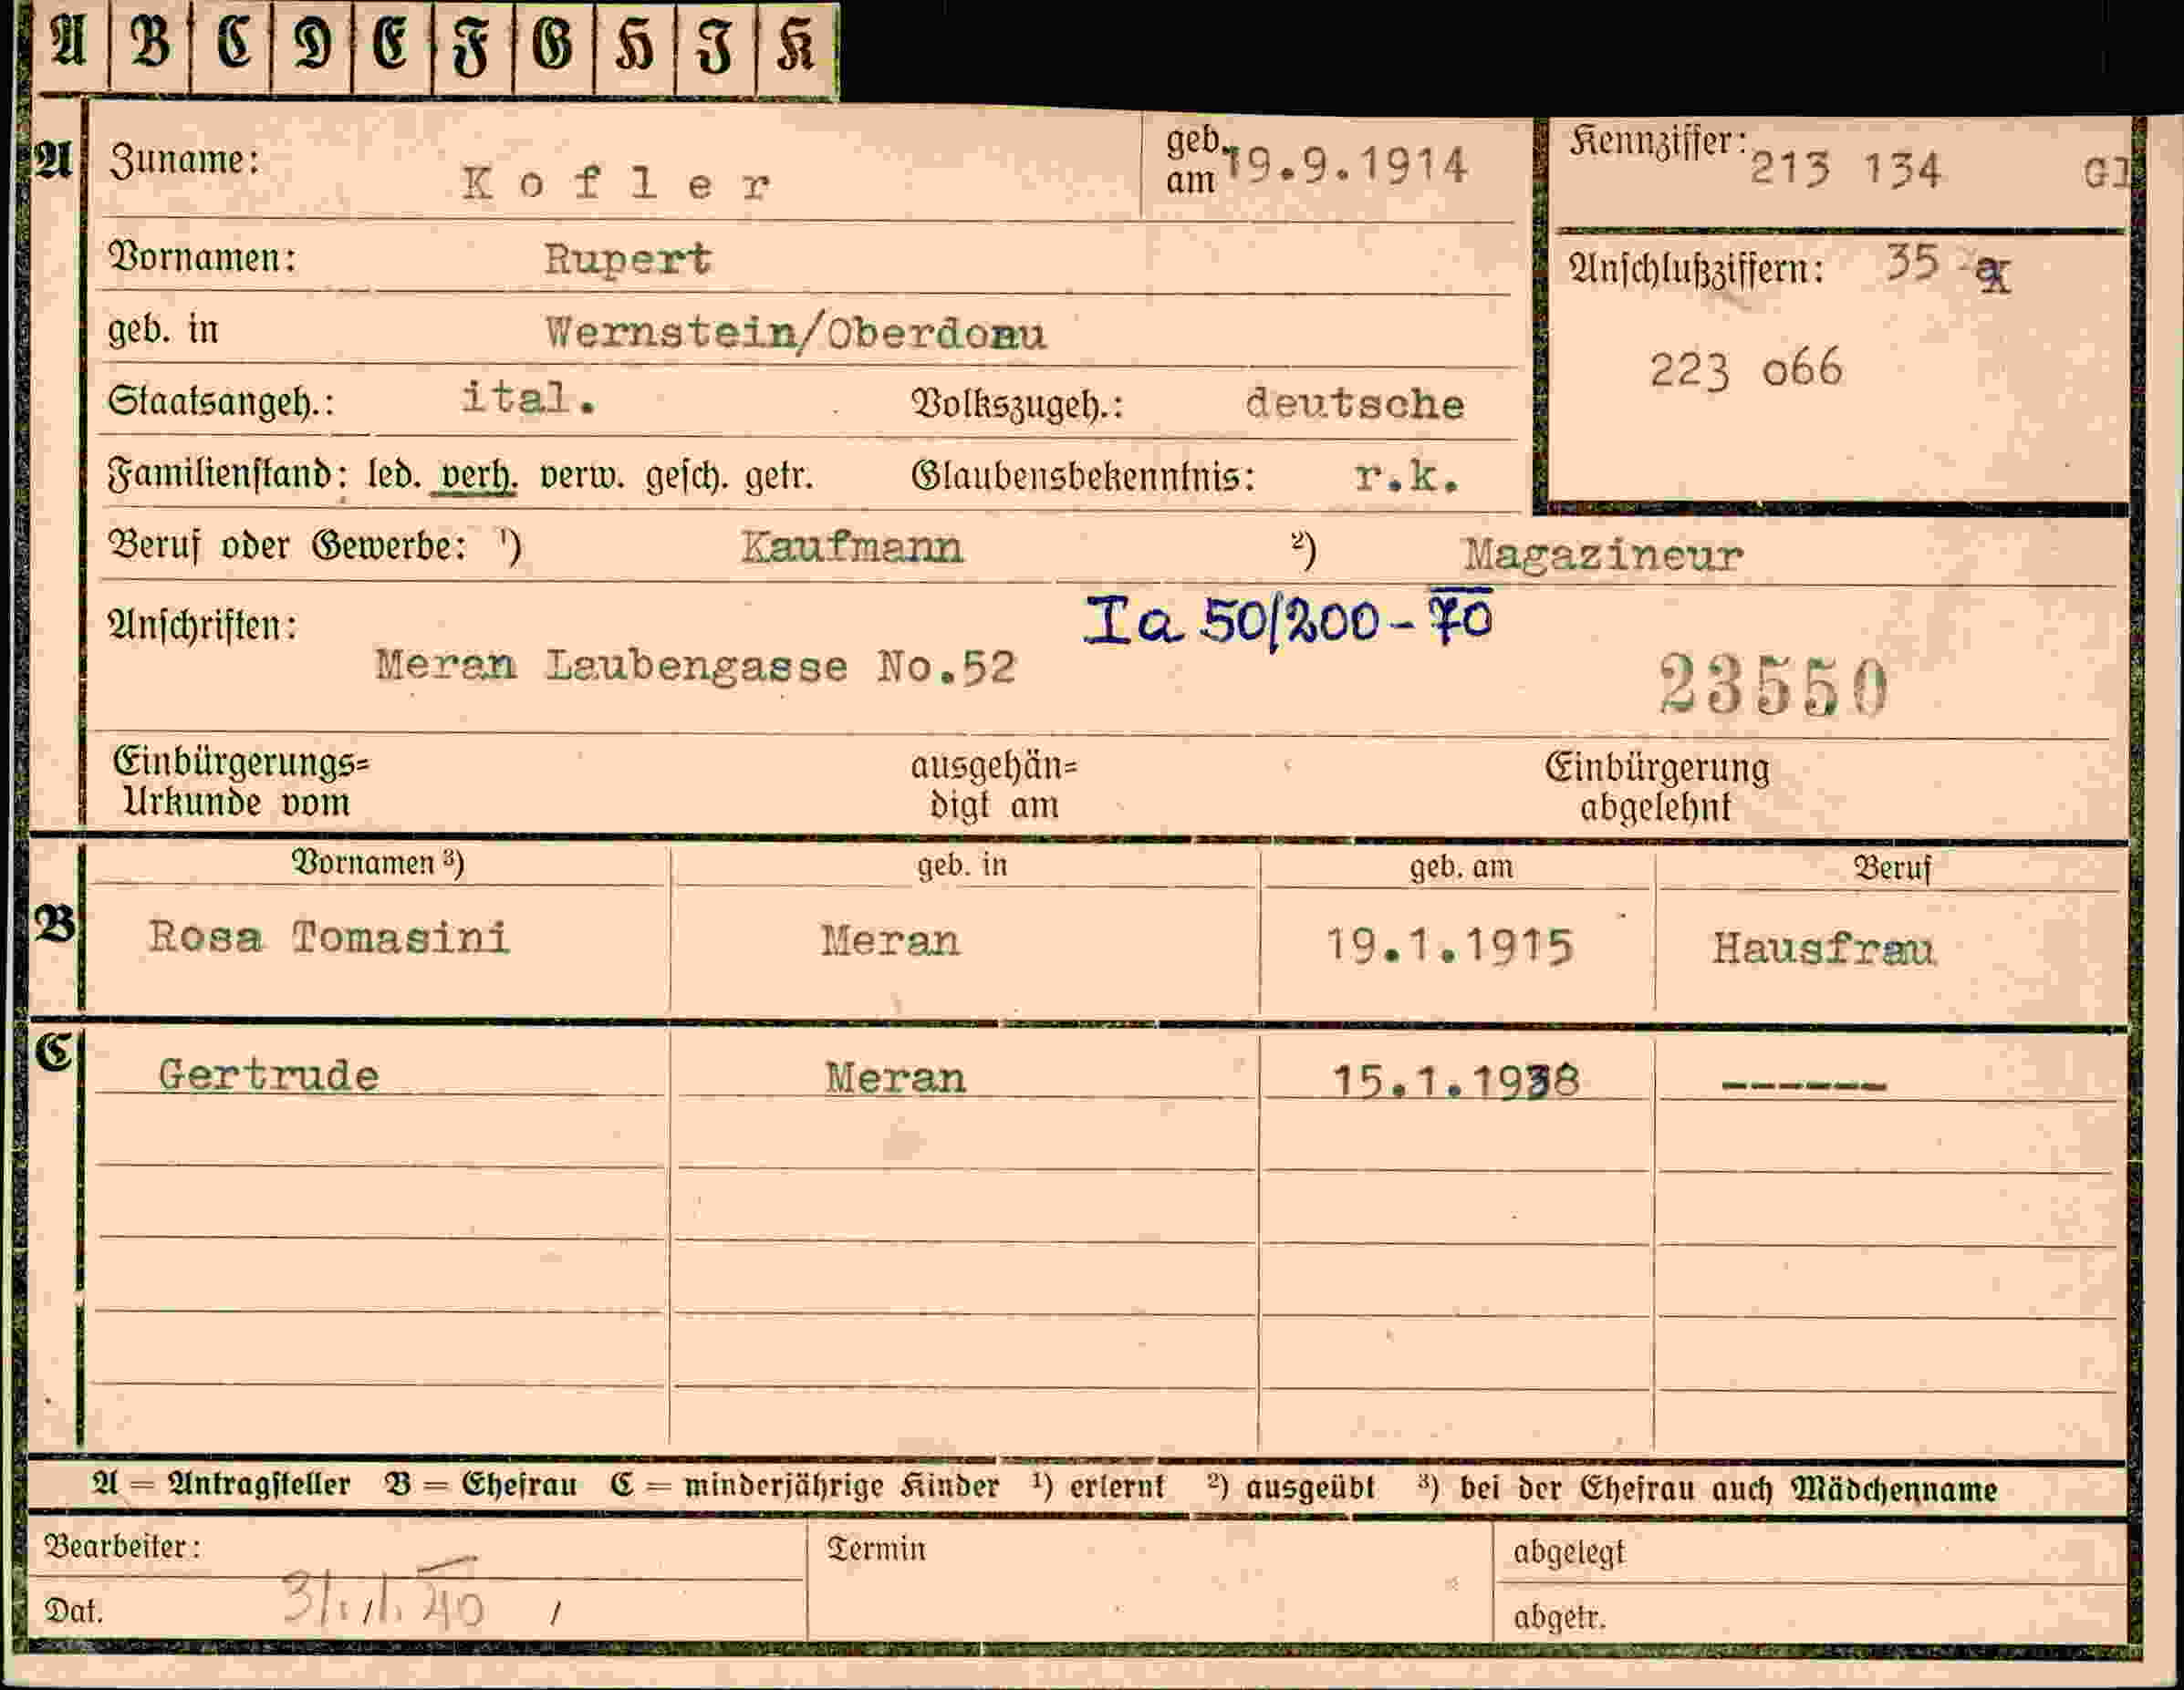 A B C D E F G H I K
A Zuname: Kofler geb. am 19.9.1914 Kennziffer: 213 134 Gl
Vornamen: Rupert Anschlußziffern: 35
geb. in Wernstein/Oberdonau 223 o66
Staatsangeh.: ital. Volkszugeh.: deutsche
Familienstand: led. verh. verw. gesch. getr. Glaubensbekenntnis: r.k.
Beruf oder Gewerbe: ¹) Kaufmann ²) Magazineur
Anschriften: Ia 50/200-70
Meran Laubengasse No.52 23550
Einbürgerungs= ausgehän= Einbürgerung
Urkunde vom digt am abgelehnt
Vornamen ³) geb. in geb. am Beruf
B Rosa Tomasini Meran 19.1.1915 Hausfrau
C Gertrude Meran 15.1.1938 ------
A = Antragsteller B = Ehefrau C = minderjährige Kinder ¹) erlernt ²) ausgeübt ³) bei der Ehefrau auch Mädchenname
Bearbeiter: Termin abgelegt
Dat. 31.1.40 abgetr.